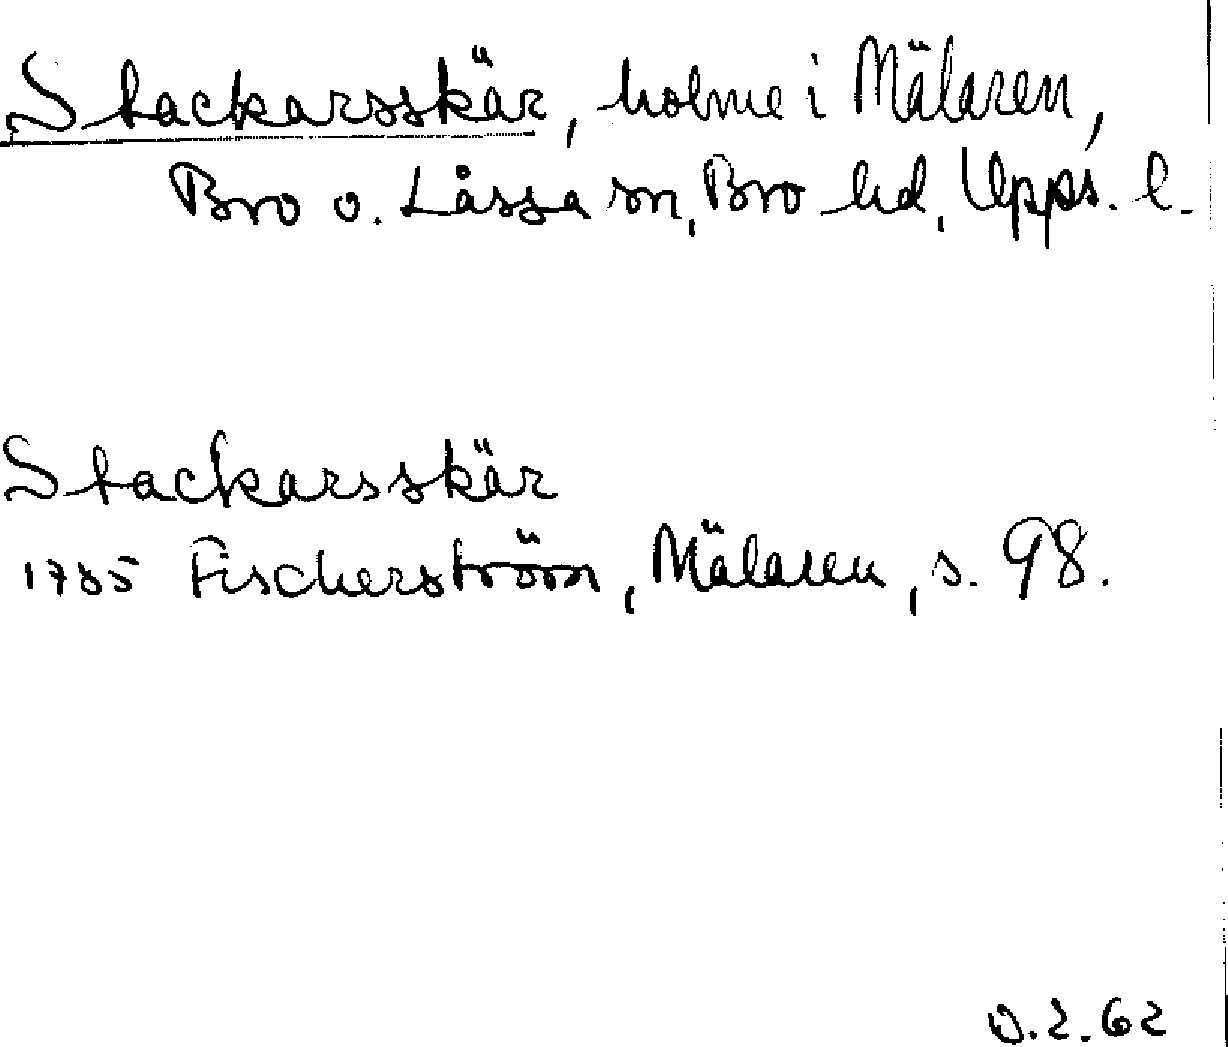 Stackarsskär, holme i Mälaren,
Bro o. Låssa sn, Bro hd, Upps. l.
Stackarsskär
1785 Fischerström, Mälaren, s. 98.
O.2.62